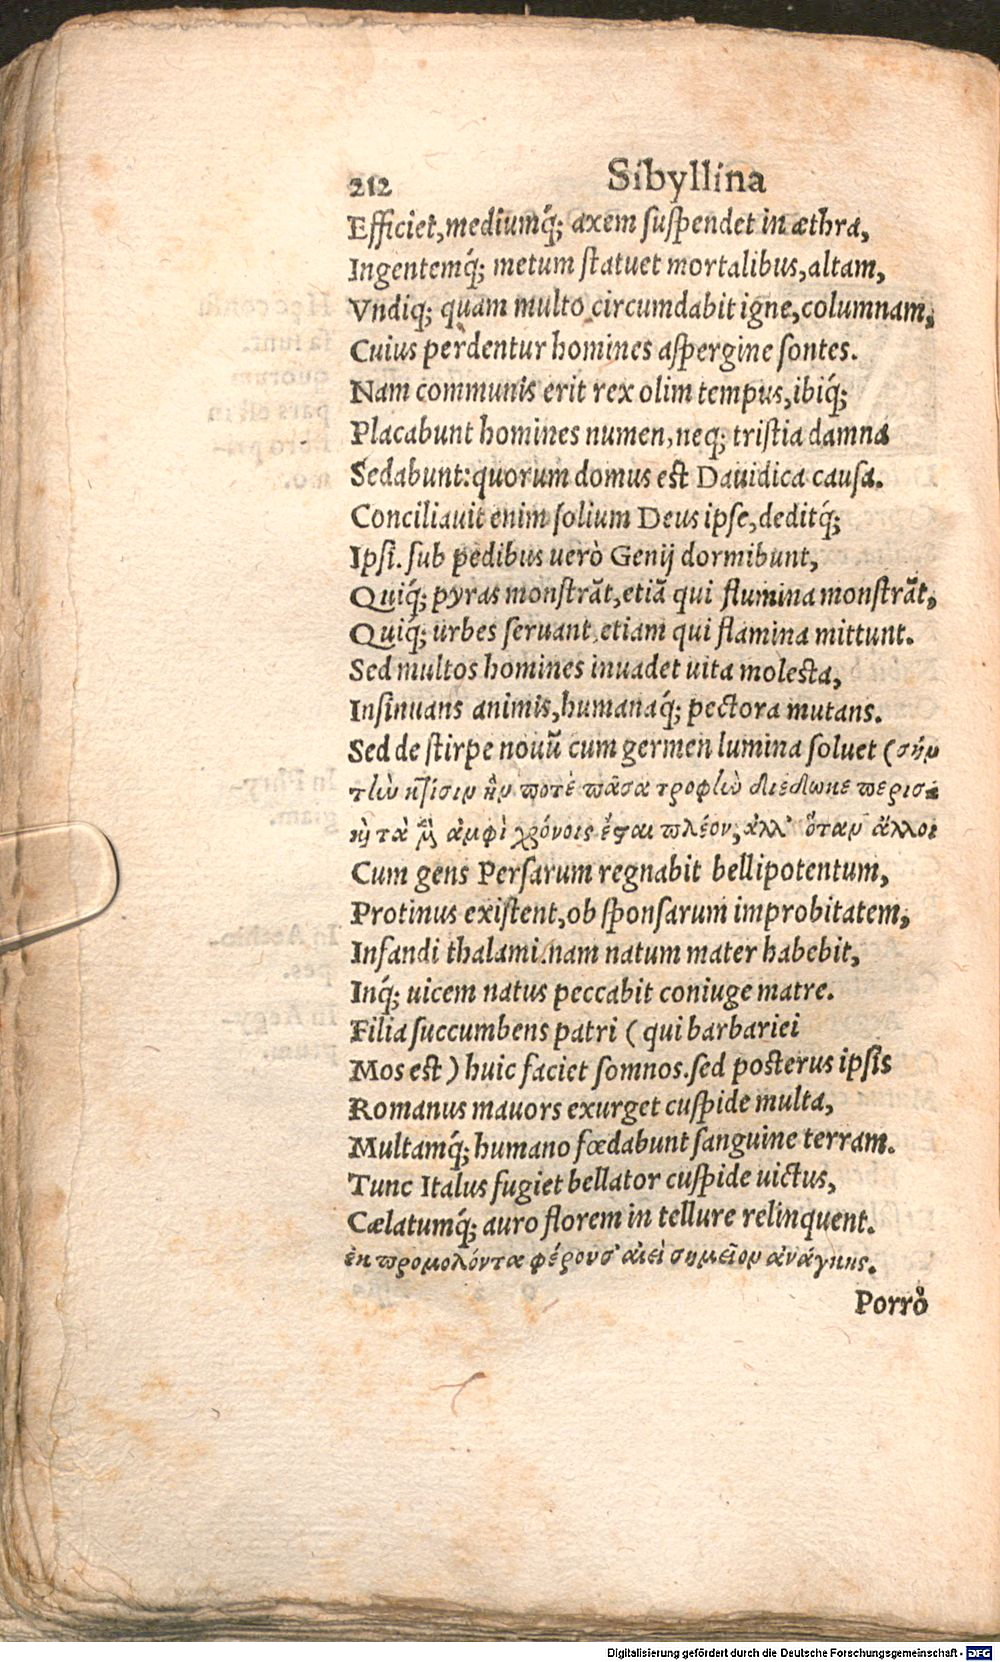 212 Sibyllina
Efficiet, mediumq́; axem suspendet in æthra,
Ingentemq́; metum statuet mortalibus, altam,
Vndiq; quam multo circumdabit igne, columnam,
Cuius perdentur homines aspergine sontes.
Nam communis erit rex olim tempus, ibiq́;
Placabunt homines numen, neq; tristia damna
Sedabunt: quorum domus est Dauidica causa.
Conciliauit enim solium Deus ipse, deditq́;
Ipsi. sub pedibus uerò Genij dormibunt,
Quiq́; pyras monstrãt, etiã qui flumina monstrãt,
Quiq́; urbes seruant, etiam qui flamina mittunt.
Sed multos homines inuadet uita molesta,
Insinuans animis, humanaq́; pectora mutans.
Sed de stirpe nouũ cum germen lumina soluet (σὴν
τὴν κτίσιν ἣν ποτὲ πᾶσα τροφὴν διέδωκε περισ-
καὶ τὰ μὲν ἀμφὶ χρόνοις ἔσται πλέον, ἀλλ' ὅταν ἄλλοι
Cum gens Persarum regnabit bellipotentum,
Protinus existent, ob sponsarum improbitatem,
Infandi thalami. nam natum mater habebit,
Inq́; uicem natus peccabit coniuge matre.
Filia succumbens patri (qui barbariei
Mos est) huic faciet somnos. sed posterus ipsis
Romanus mauors exurget cuspide multa,
Multamq́; humano fœdabunt sanguine terram.
Tunc Italus fugiet bellator cuspide uictus,
Cælatumq́; auro florem in tellure relinquent.
ἐκ προμολόντα φέρουσ' αἰεὶ σημεῖον ἀνάγκης.
Porrò
Digitalisierung gefördert durch die Deutsche Forschungsgemeinschaft - DFG